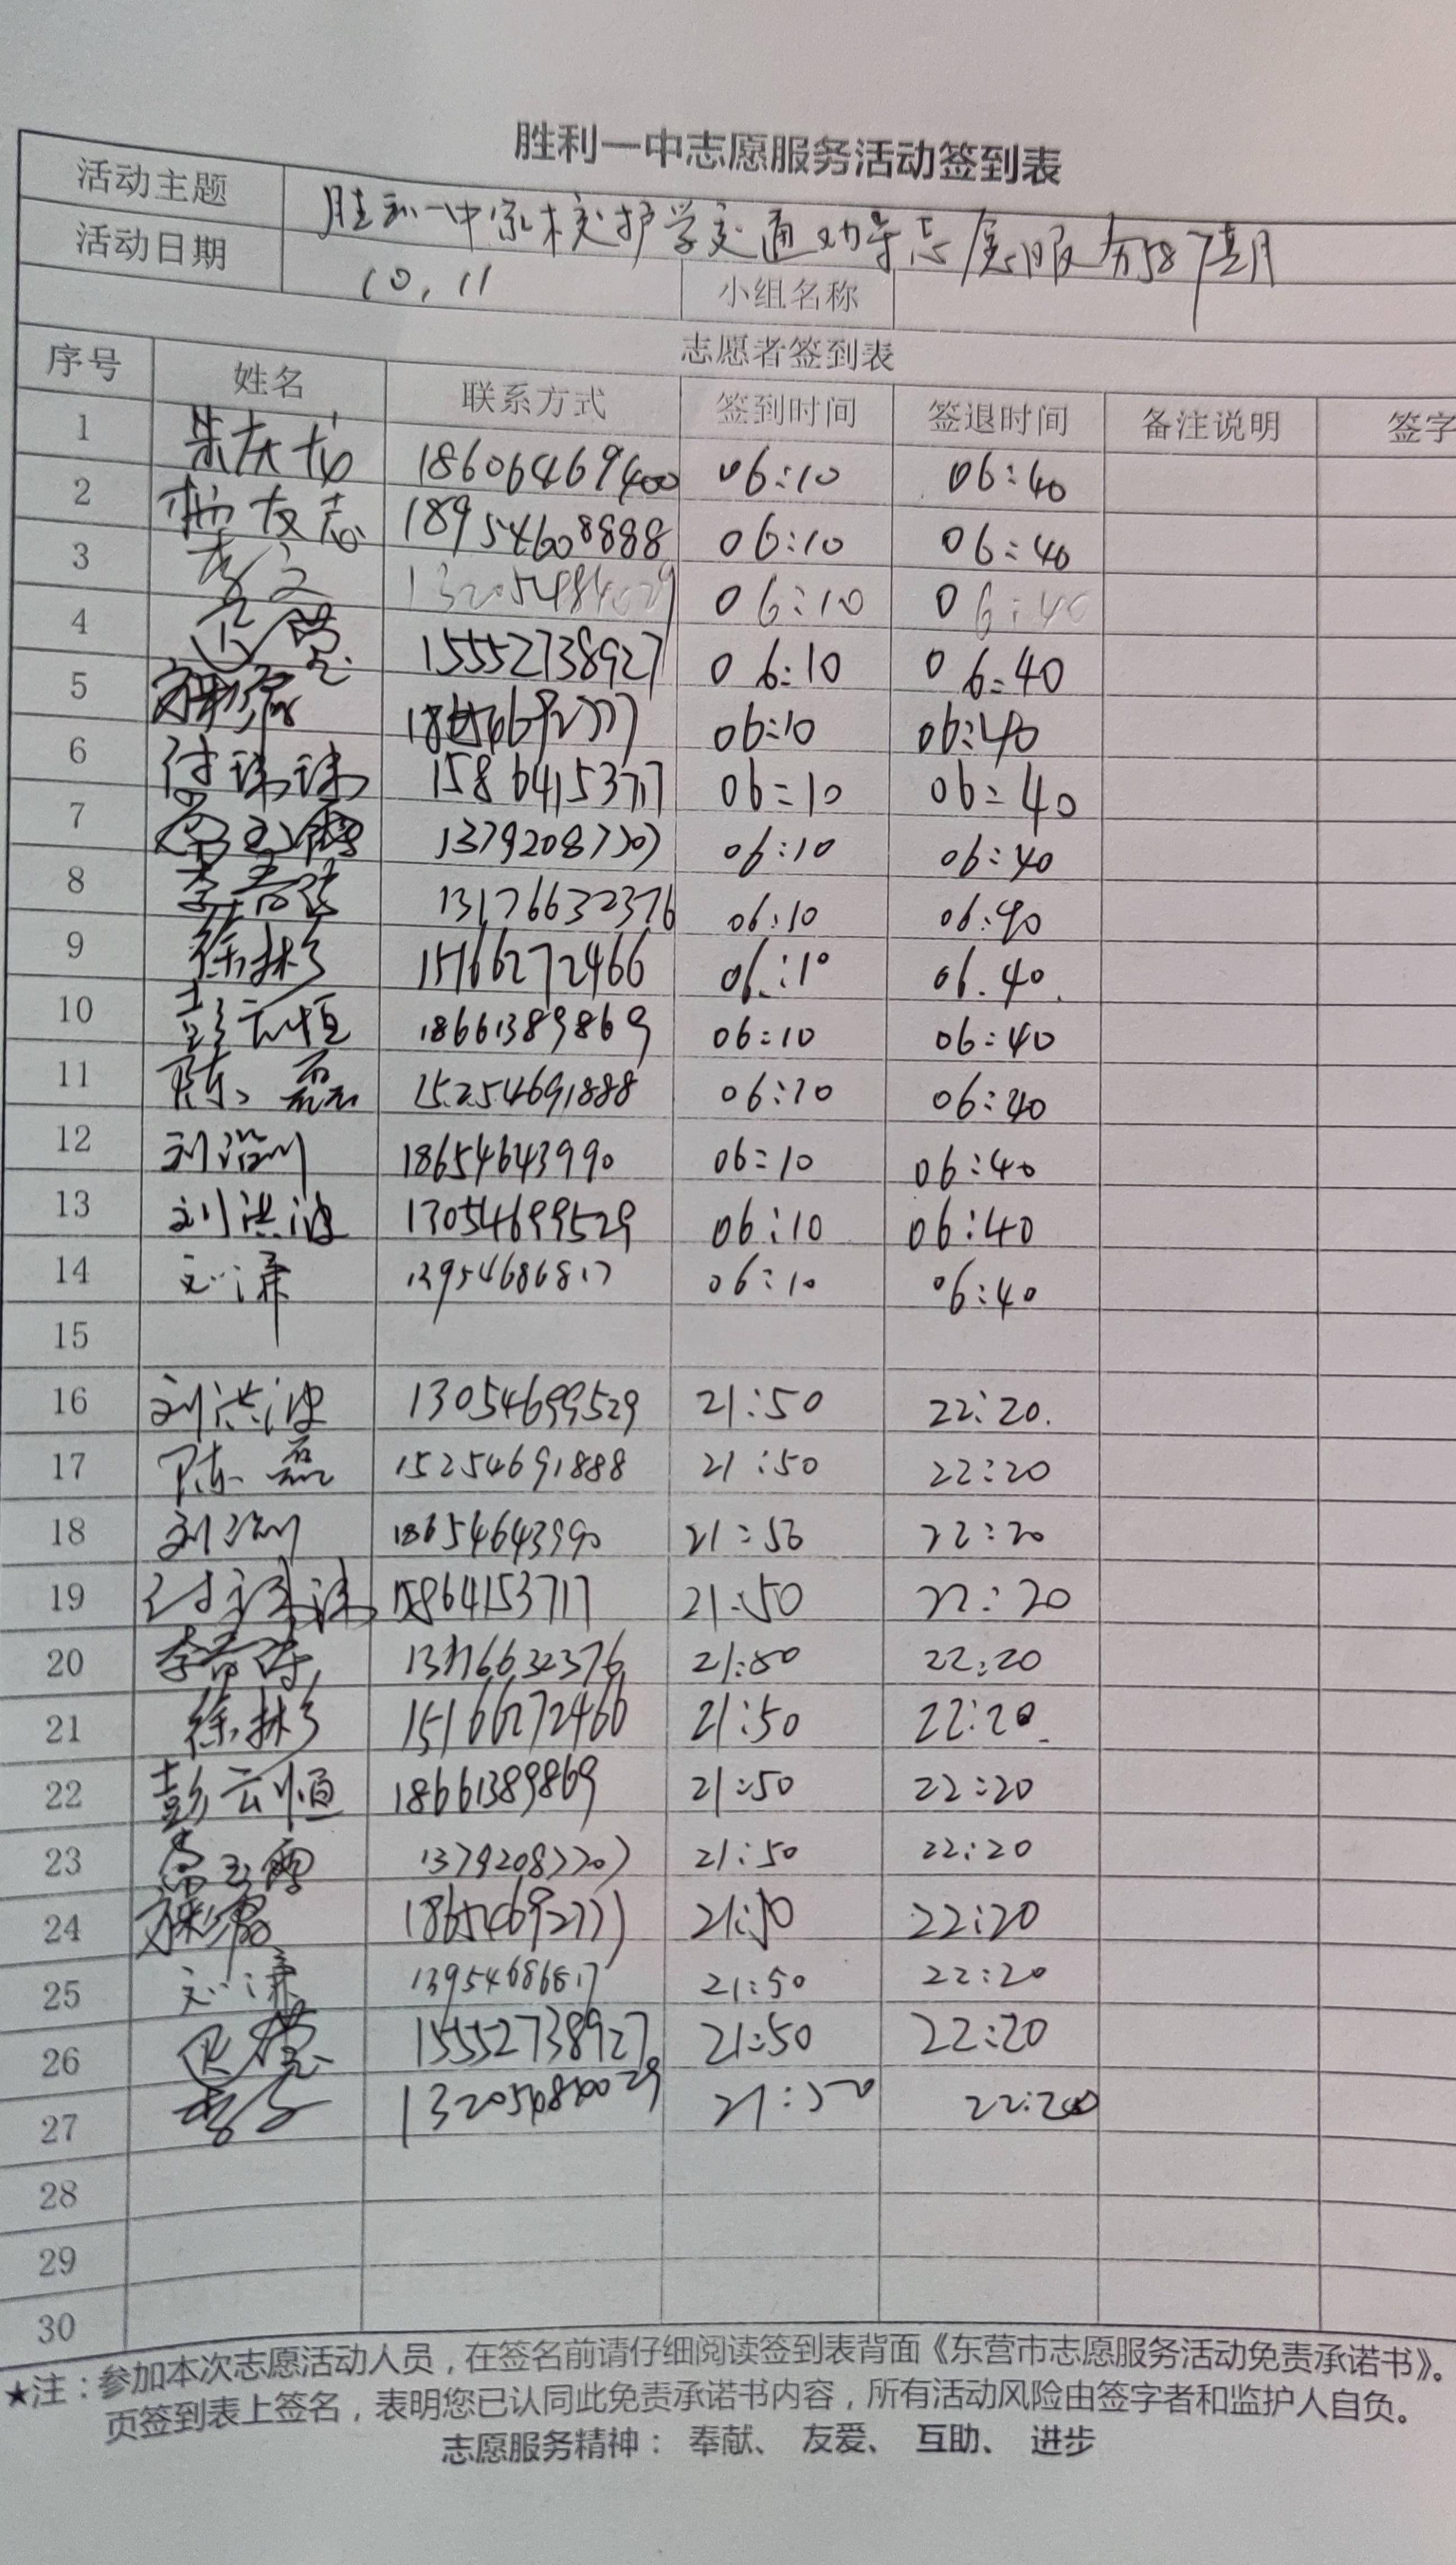 胜利一中志愿服务活动签到表
活动主题 胜利一中家校护学交通劝导志愿服务587期
活动日期 10.11 小组名称
志愿者签到表
序号 姓名 联系方式 签到时间 签退时间 备注说明 签字
1 朱庆龙 18606469400 06:10 06:40
2 友志 18954608888 06:10 06:40
3 06:10 06:40
4 15552738927 06:10 06:40
5 06:10 06:40
6 付咏咏 15864153717 06:10 06:40
7 13792087707 06:10 06:40
8 13176632376 06:10 06:40
9 徐彬 15166272466 06:10 06.40.
10 彭云恒 18661389869 06:10 06:40
11 陈磊 15254691888 06:10 06:40
12 刘沿川 18654643990 06:10 06:40
13 刘洪波 13054699529 06:10 06:40
14 13954686817 06:10 06:40
15
16 刘洪波 13054699529 21:50 22:20.
17 陈磊 15254691888 21:50 22:20
18 刘沿川 18654643990 21:50 22:20
19 付咏咏 15864153717 21:50 22:20
20 13176632376 21:50 22:20
21 徐彬 15166272466 21:50 22:20
22 彭云恒 18661389869 21:50 22:20
23 13792087707 21:50 22:20
24 18654692777 21:50 22:20
25 13954686817 21:50 22:20
26 15552738927 21:50 22:20
27 21:50 22:20
28
29
30
★注:参加本次志愿活动人员,在签名前请仔细阅读签到表背面《东营市志愿服务活动免责承诺书》。
页签到表上签名,表明您已认同此免责承诺书内容,所有活动风险由签字者和监护人自负。
志愿服务精神: 奉献、 友爱、 互助、 进步